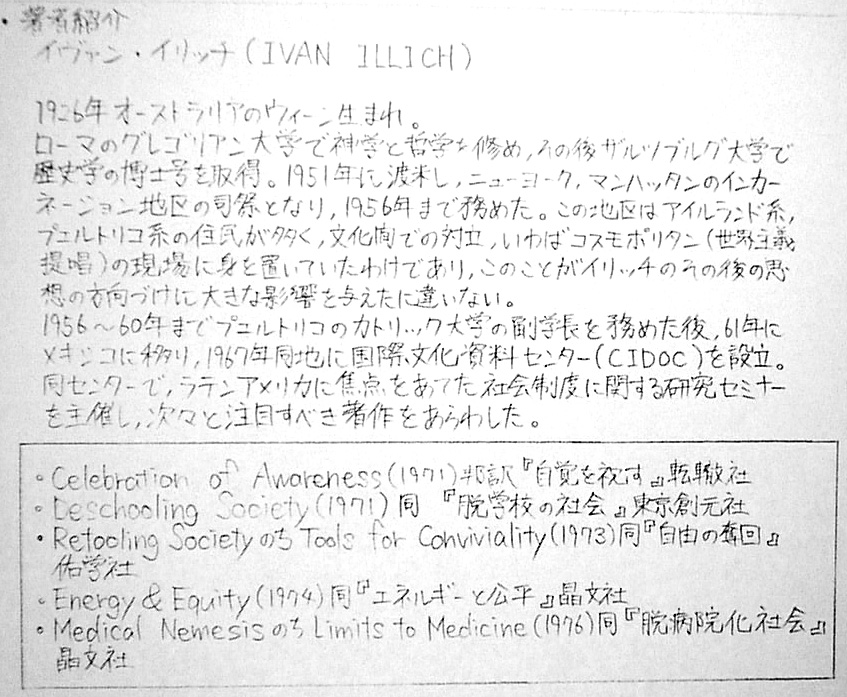 ・著者紹介
イヴァン・イリッチ(IVAN ILLICH)
1926年オーストラリアのウィーン生まれ。
ローマのグレゴリアン大学で神学と哲学を修め,その後ザルツブルグ大学で
歴史学の博士号を取得。1951年に渡米し,ニューヨーク,マンハッタンのインカー
ネーション地区の司祭となり,1956年まで務めた。この地区はアイルランド系,
プエルトリコ系の住民が多く,文化間での対立,いわばコスモポリタン(世界主義
提唱)の現場に身を置いていたわけであり,このことがイリッチのその後の思
想の方向づけに大きな影響を与えたに違いない。
1956〜60年までプエルトリコのカトリック大学の副学長を務めた後,61年に
メキシコに移り,1967年同地に国際文化資料センター(CIDOC)を設立。
同センターで,ラテンアメリカに焦点をあてた社会制度に関する研究セミナー
を主催し,次々と注目すべき著作をあらわした。
・Celebration of Awareness(1971)邦訳『自覚を祝す』転轍社
・Deschooling Society(1971)同『脱学校の社会』東京創元社
・Retooling SocietyのちTools for Conviviality(1973)同『自由の奪回』
佑学社
・Energy & Equity(1974)同『エネルギーと公平』晶文社
・Medical NemesisのちLimits to Medicine(1976)同『脱病院化社会』
晶文社